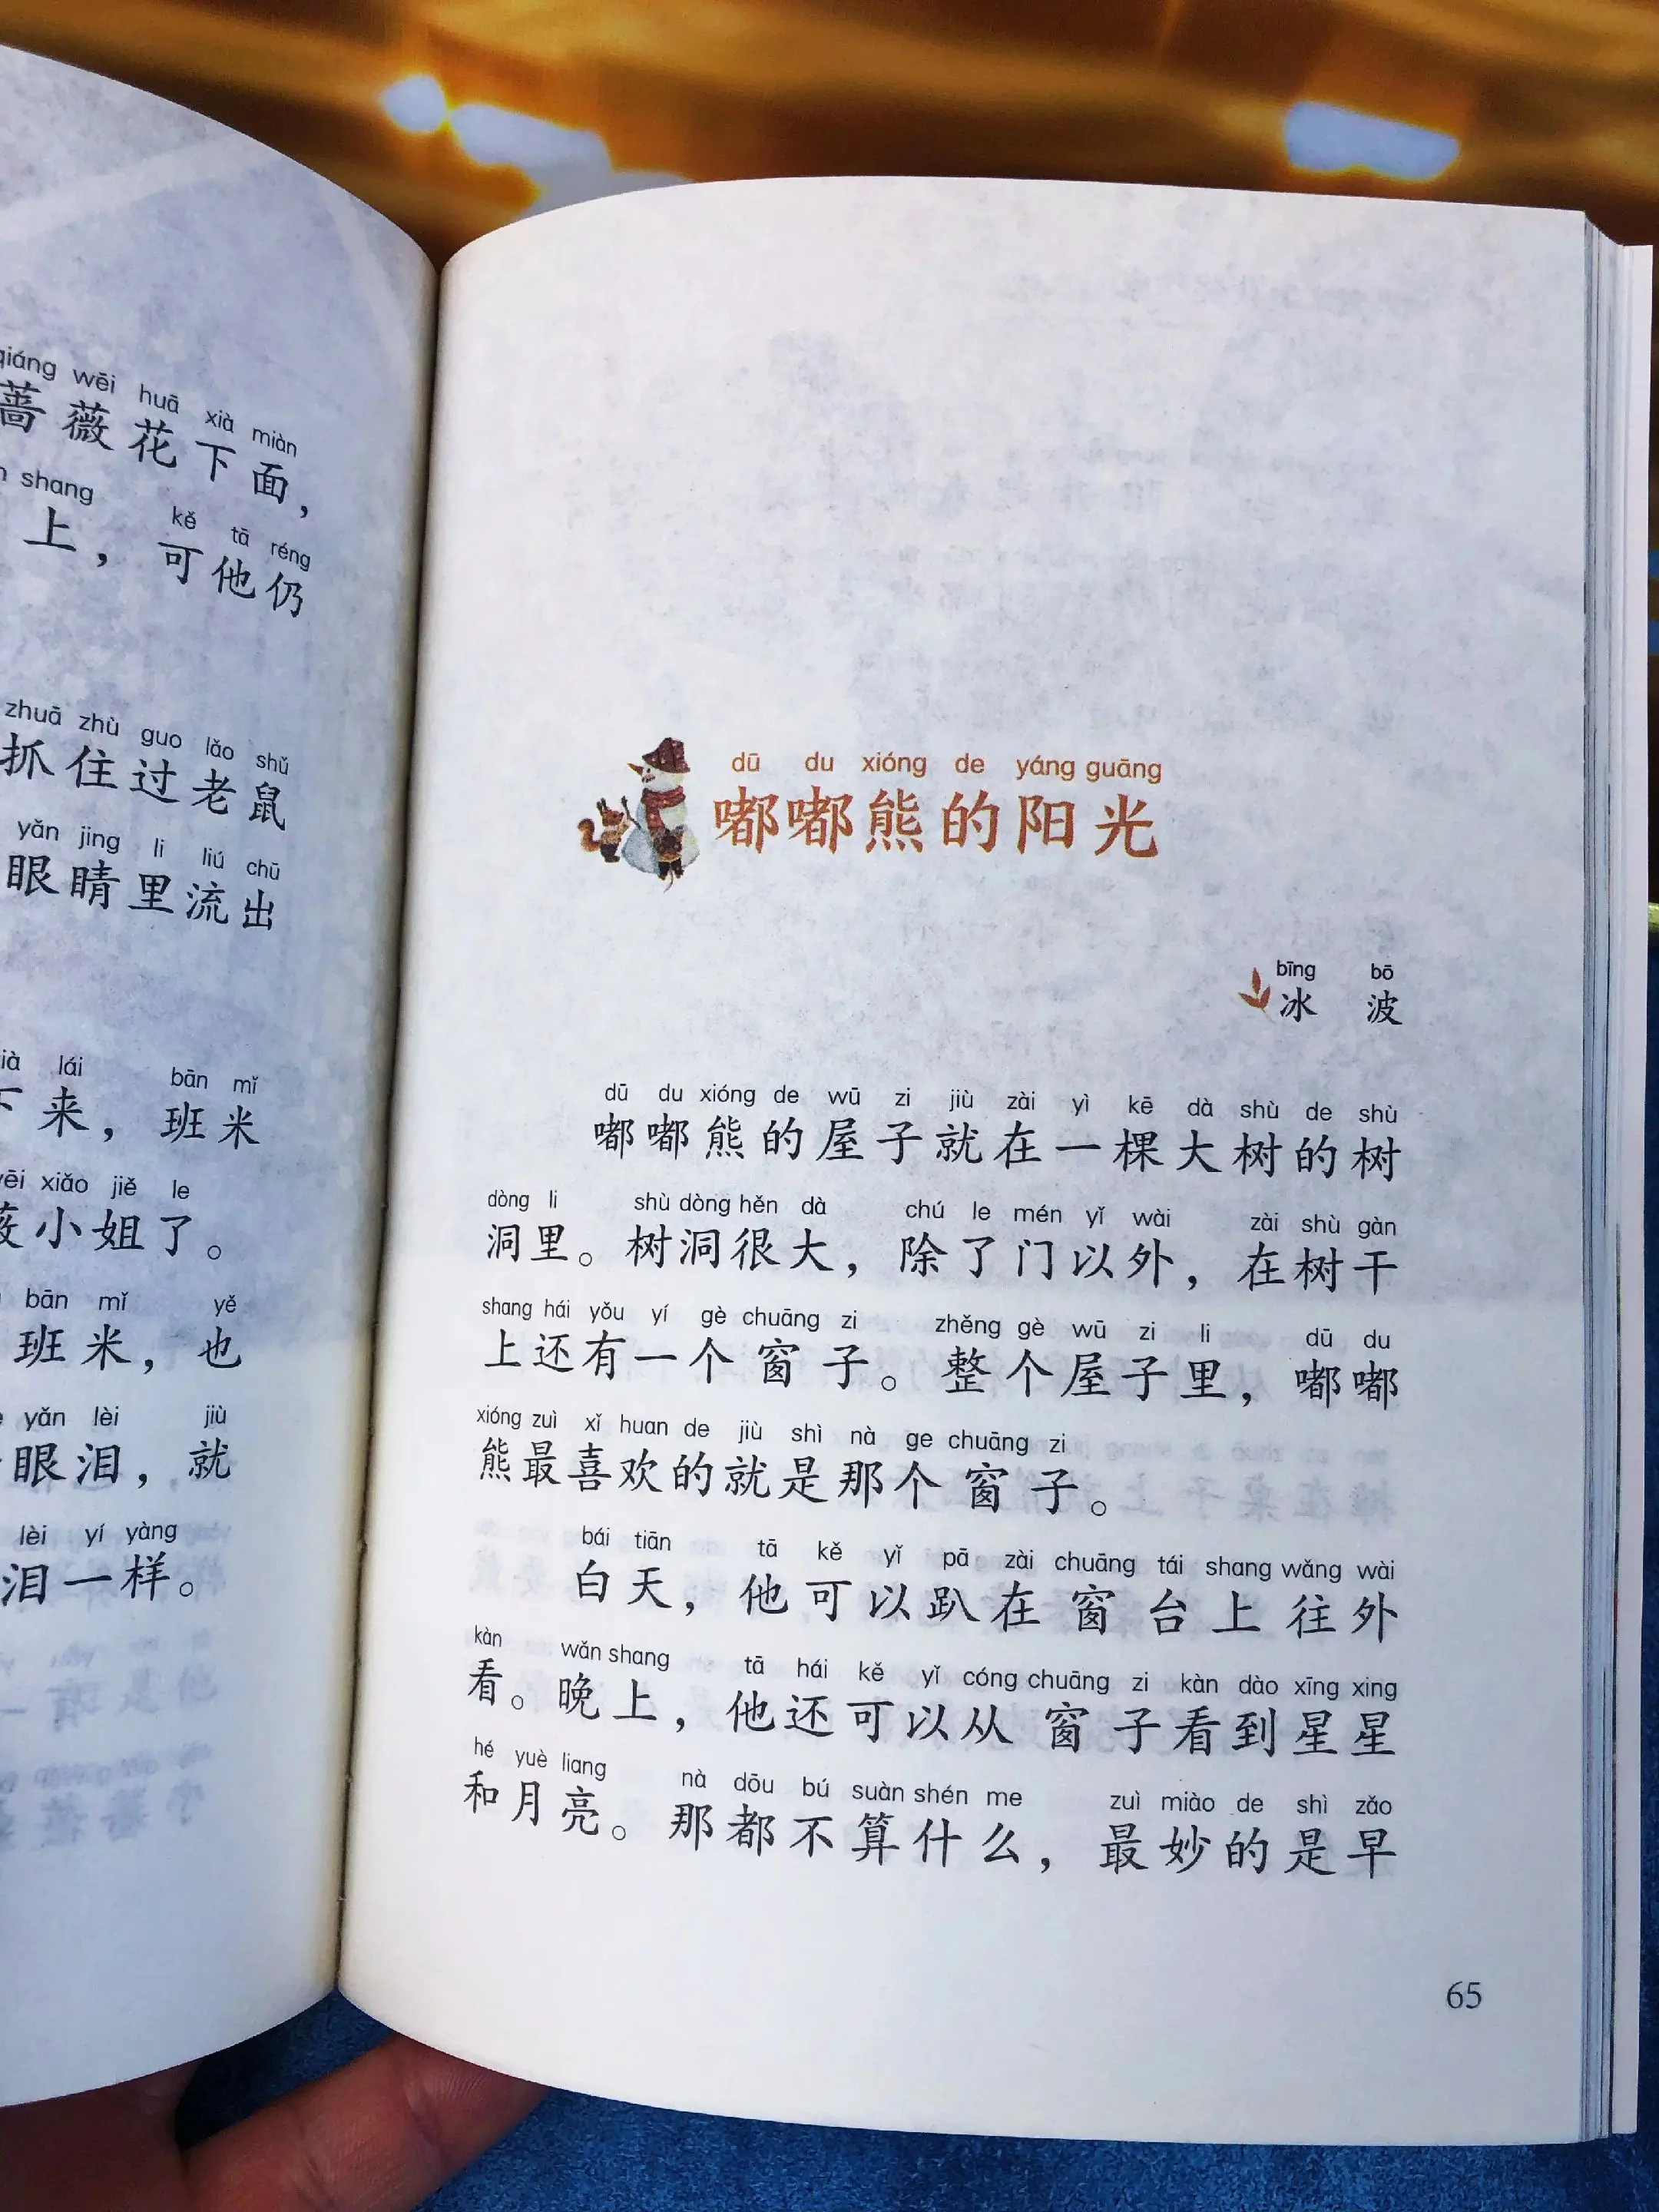 qiáng wēi huā xià miàn
蔷薇花下面，
shang kě tā réng
上，可他仍
zhuā zhù guo lǎo shǔ
抓住过老鼠
yǎn jing li liú chū
眼睛里流出
lái bān mǐ
下来，班米
xiǎo jiě le
薇小姐了。
bān mǐ yě
班米，也
yǎn lèi jiù
眼泪，就
lèi yí yàng
泪一样。
dū du xióng de yáng guāng
嘟嘟熊的阳光
bīng bō
冰 波
dū du xióng de wū zi jiù zài yì kē dà shù de shù
嘟嘟熊的屋子就在一棵大树的树
dòng li shù dòng hěn dà chú le mén yǐ wài zài shù gàn
洞里。树洞很大，除了门以外，在树干
shang hái yǒu yí gè chuāng zi zhěng gè wū zi li dū du
上还有一个窗子。整个屋子里，嘟嘟
xióng zuì xǐ huan de jiù shì nà ge chuāng zi
熊最喜欢的就是那个窗子。
bái tiān tā kě yǐ pā zài chuāng tái shang wǎng wài
白天，他可以趴在窗台上往外
kàn wǎn shang tā hái kě yǐ cóng chuāng zi kàn dào xīng xing
看。晚上，他还可以从窗子看到星星
hé yuè liang nà dōu bú suàn shén me zuì miào de shì zǎo
和月亮。那都不算什么，最妙的是早
65